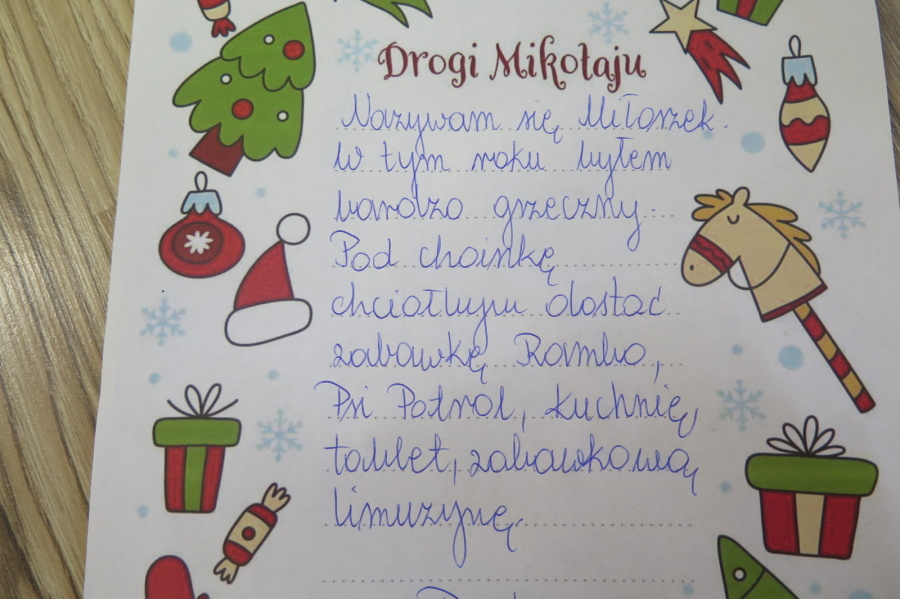 Drogi Mikołaju
Nazywam się Miłoszek.
W tym roku byłem
bardzo grzeczny.
Pod choinkę
chciałbym dostać
zabawkę Rambo,
Psi Patrol, kuchnię,
tablet, zabawkową
limuzynę.